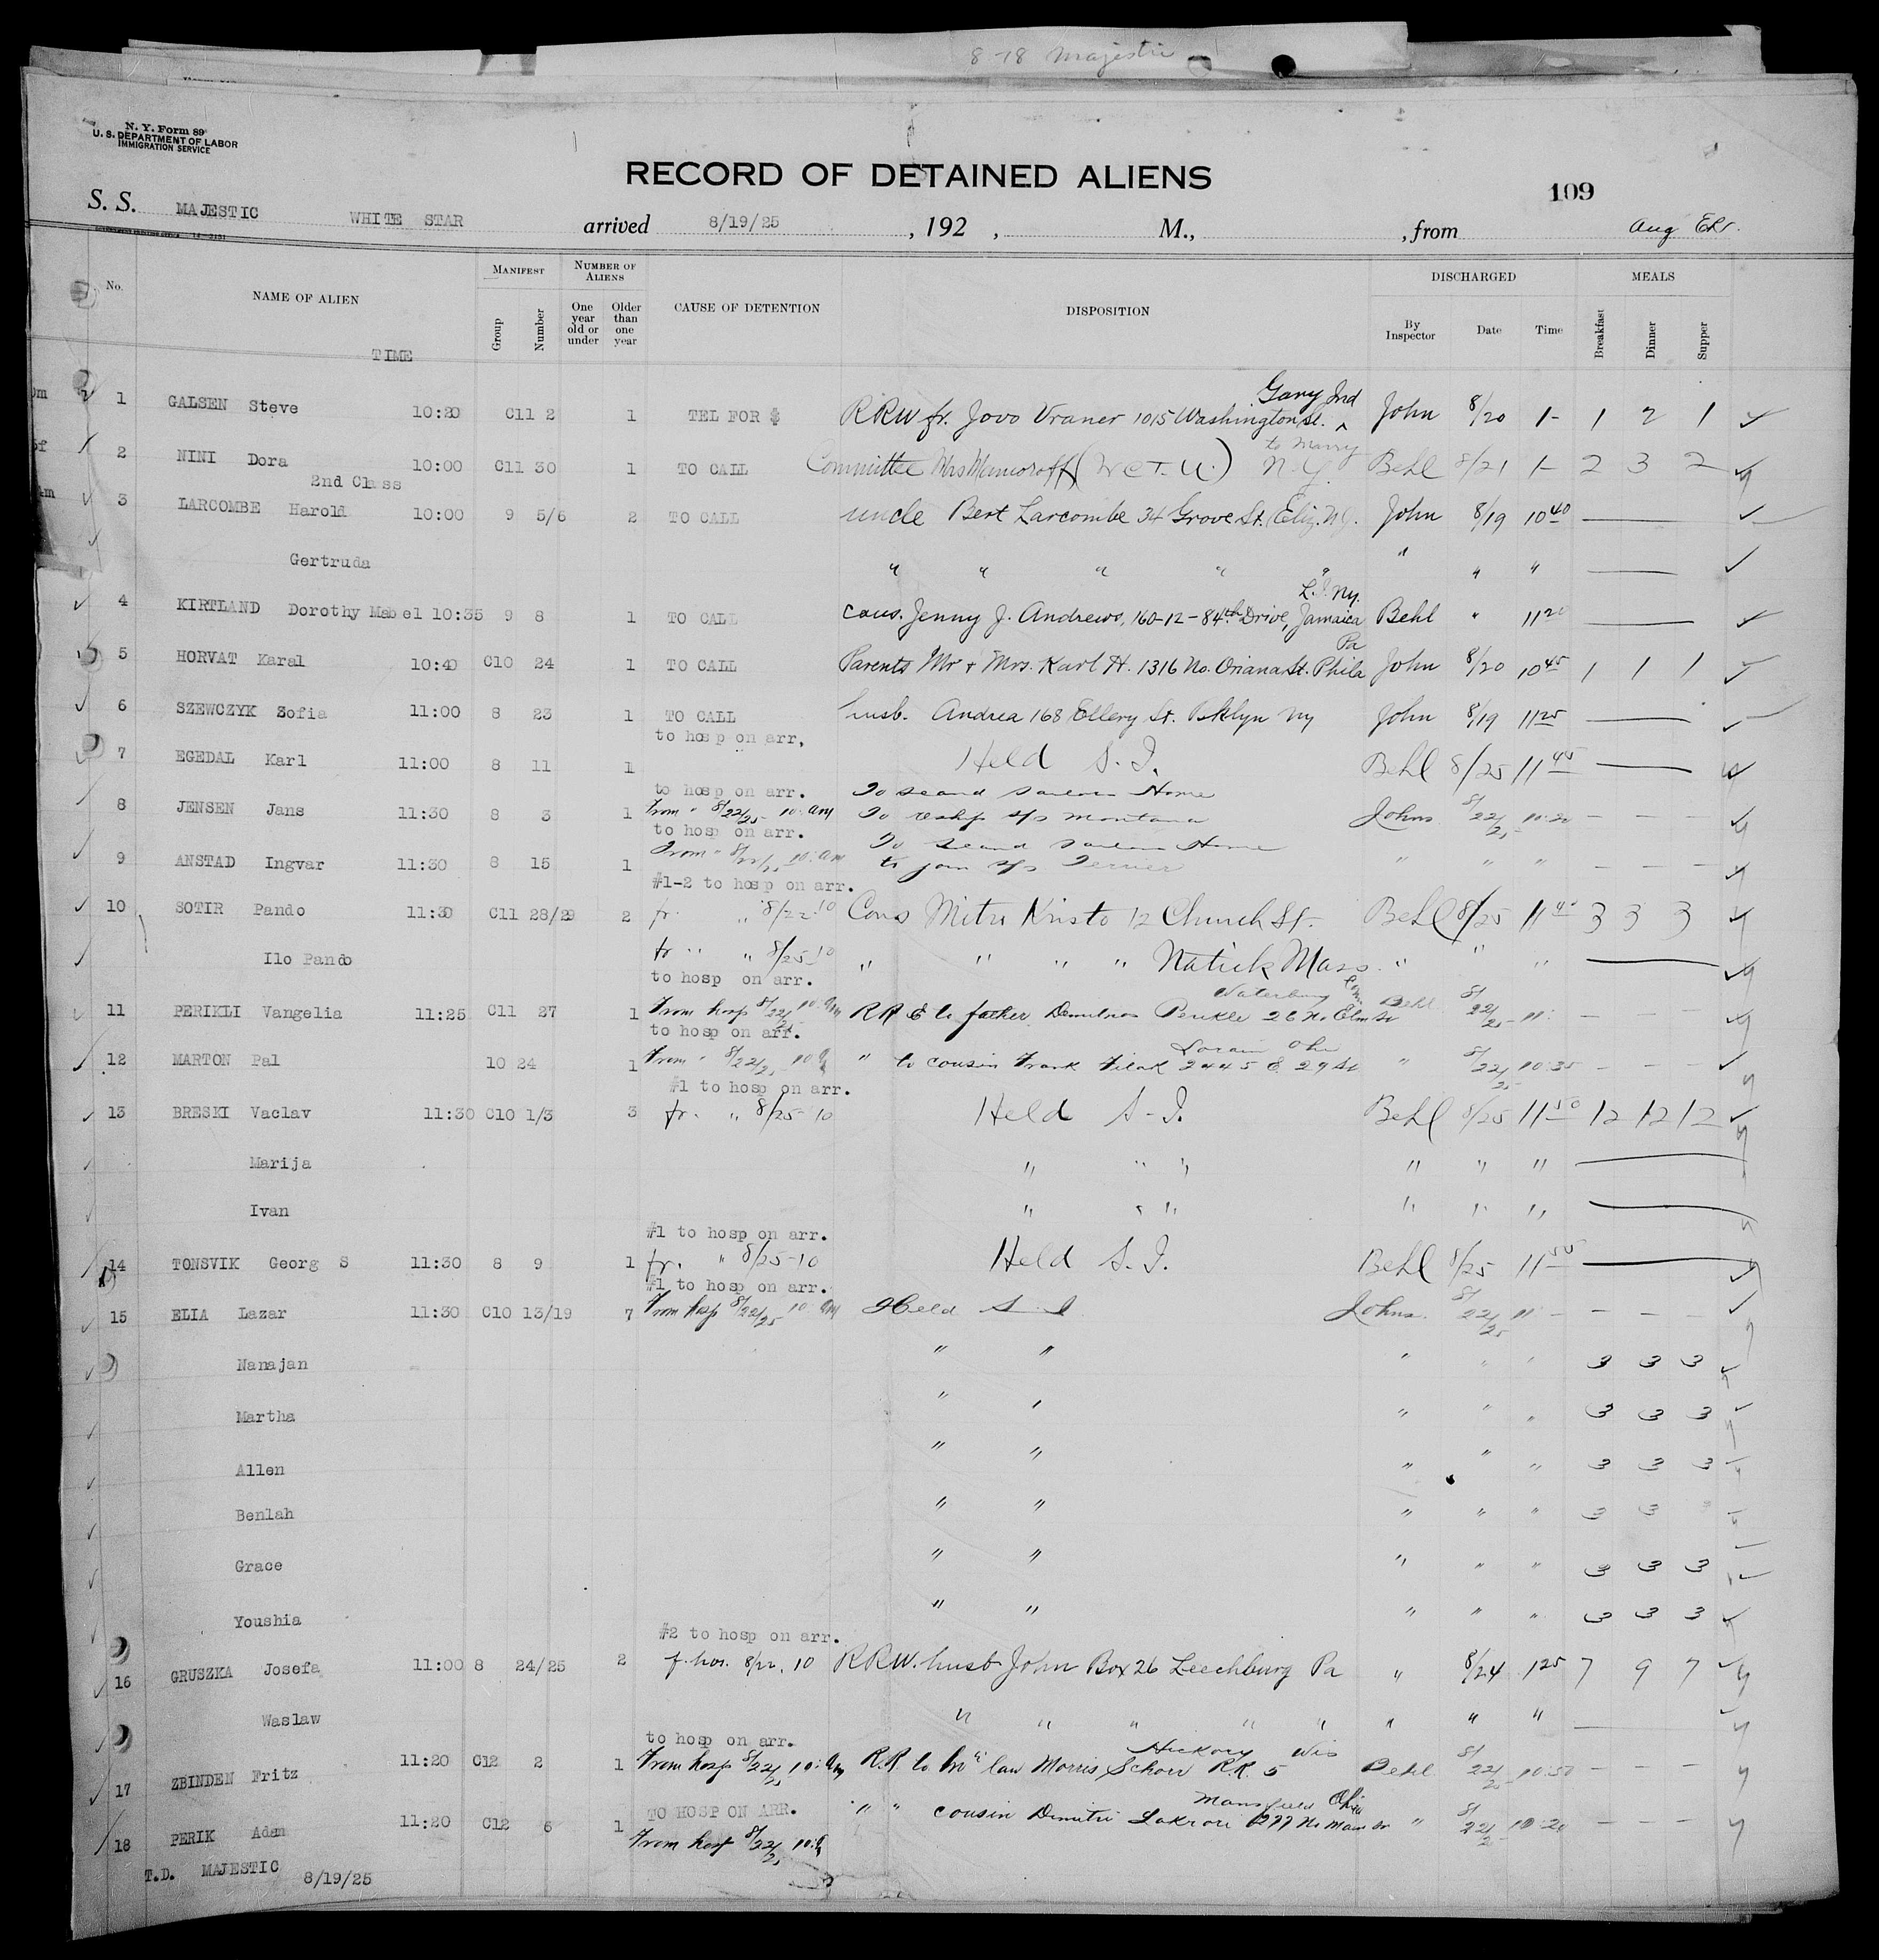 8-18 Majestic
N. Y. Form 89
U. S. DEPARTMENT OF LABOR
IMMIGRATION SERVICE
RECORD OF DETAINED ALIENS
109
S. S. MAJESTIC WHITE STAR arrived 8/19/25 , 192 , M., , from Aug
No. NAME OF ALIEN MANIFEST NUMBER OF ALIENS CAUSE OF DETENTION DISPOSITION DISCHARGED MEALS
Group Number One year old or under Older than one year By Inspector Date Time Breakfast Dinner Supper
TIME
Gary Ind
1 GALSEN Steve 10:20 C11 2 1 TEL FOR $ RRW fr. Jovo Vraner 1015 Washington St. John 8/20 1- 1 2 1
to marry
2 NINI Dora 10:00 C11 30 1 TO CALL Committee Mrs (W C T. U.) N.Y. Behl 8/21 1- 2 3 2
2nd Class
3 LARCOMBE Harold 10:00 9 5/6 2 TO CALL uncle Bert Larcombe 34 Grove St. Eliz. N.J. John 8/19 10 40
Gertruda " " " " " " " "
L.I. Ny.
4 KIRTLAND Dorothy Mabel 10:35 9 8 1 TO CALL cous. Jenny J. Andrews, 160-12-84th Drive, Jamaica Behl " 11 20
Pa
5 HORVAT Karal 10:40 C10 24 1 TO CALL Parents Mr + Mrs. Karl H. 1316 No. Oriana St. Phila John 8/20 10 45 1 1 1
6 SZEWCZYK Zofia 11:00 8 23 1 TO CALL husb. Andrea 168 Ellery St. Bklyn Ny John 8/19 11 25
to hosp on arr,
7 EGEDAL Karl 11:00 8 11 1 Held S. I. Behl 8/25 11 45
to hosp on arr. To Scand Sailors Home
8 JENSEN Jans 11:30 8 3 1 From " 8/22/25 10:am To reship s/s Montana Johns 8/22/25 10:20 - - -
to hosp on arr. To Scand Sailors Home
9 ANSTAD Ingvar 11:30 8 15 1 From " 8/22/25 10:am to join s/s " " " - - -
#1-2 to hosp on arr.
10 SOTIR Pando 11:30 C11 28/29 2 fr. " 8/22 10 Cous Mitu Kristo 12 Church St. Behl 8/25 11 3 3 3
Ilo Pando fr " " 8/25 10 " " " " Natick Mass. " " "
to hosp on arr. Waterbury Conn
11 PERIKLI Vangelia 11:25 C11 27 1 From hosp 8/22/25 10:am RR E to father 26 N. Elm St Behl 8/22/25 11: - - -
to hosp on arr. Lorain Ohio
12 MARTON Pal 10 24 1 From " 8/22/25 10 " to cousin Frank 2445 E. 29 St " 8/22/25 10:35 - - -
#1 to hosp on arr.
13 BRESKI Vaclav 11:30 C10 1/3 3 fr. " 8/25 10 Held S-I. Behl 8/25 11 50 12 12 12
Marija " " " " " "
Ivan " " " " " "
#1 to hosp on arr.
14 TONSVIK Georg S 11:30 8 9 1 fr. " 8/25-10 Held S. I. Behl 8/25 11
#1 to hosp on arr.
15 ELIA Lazar 11:30 C10 13/19 7 From hosp 8/22/25 10 am Held S I Johns. 8/22/25 11 - - -
Nanajan " " " " " 3 3 3
Martha " " " " " 3 3 3
Allen " " " " " 3 3 3
Benlah " " " " " 3 3 3
Grace " " " " " 3 3 3
Youshia " " " " " 3 3 3
#2 to hosp on arr.
16 GRUSZKA Josefa 11:00 8 24/25 2 f. hos. 8/22, 10 RRW. husb John Box 26 Leechburg Pa " 8/24 1 25 7 9 7
Waslaw " " " " " " " "
to hosp on arr. Hickory Wis
17 ZBINDEN Fritz 11:20 C12 2 1 From hosp 8/22/25 10:am R.R. to law Morris R.R. 5 Behl 8/22/25 10:50 - - -
TO HOSP ON ARR. Mansfield Ohio
18 PERIK Adem 11:20 C12 6 1 From hosp 8/22/25 10: " " cousin Dimitri N. Main St " 8/22/25 10:20 - - -
T.D. MAJESTIC 8/19/25